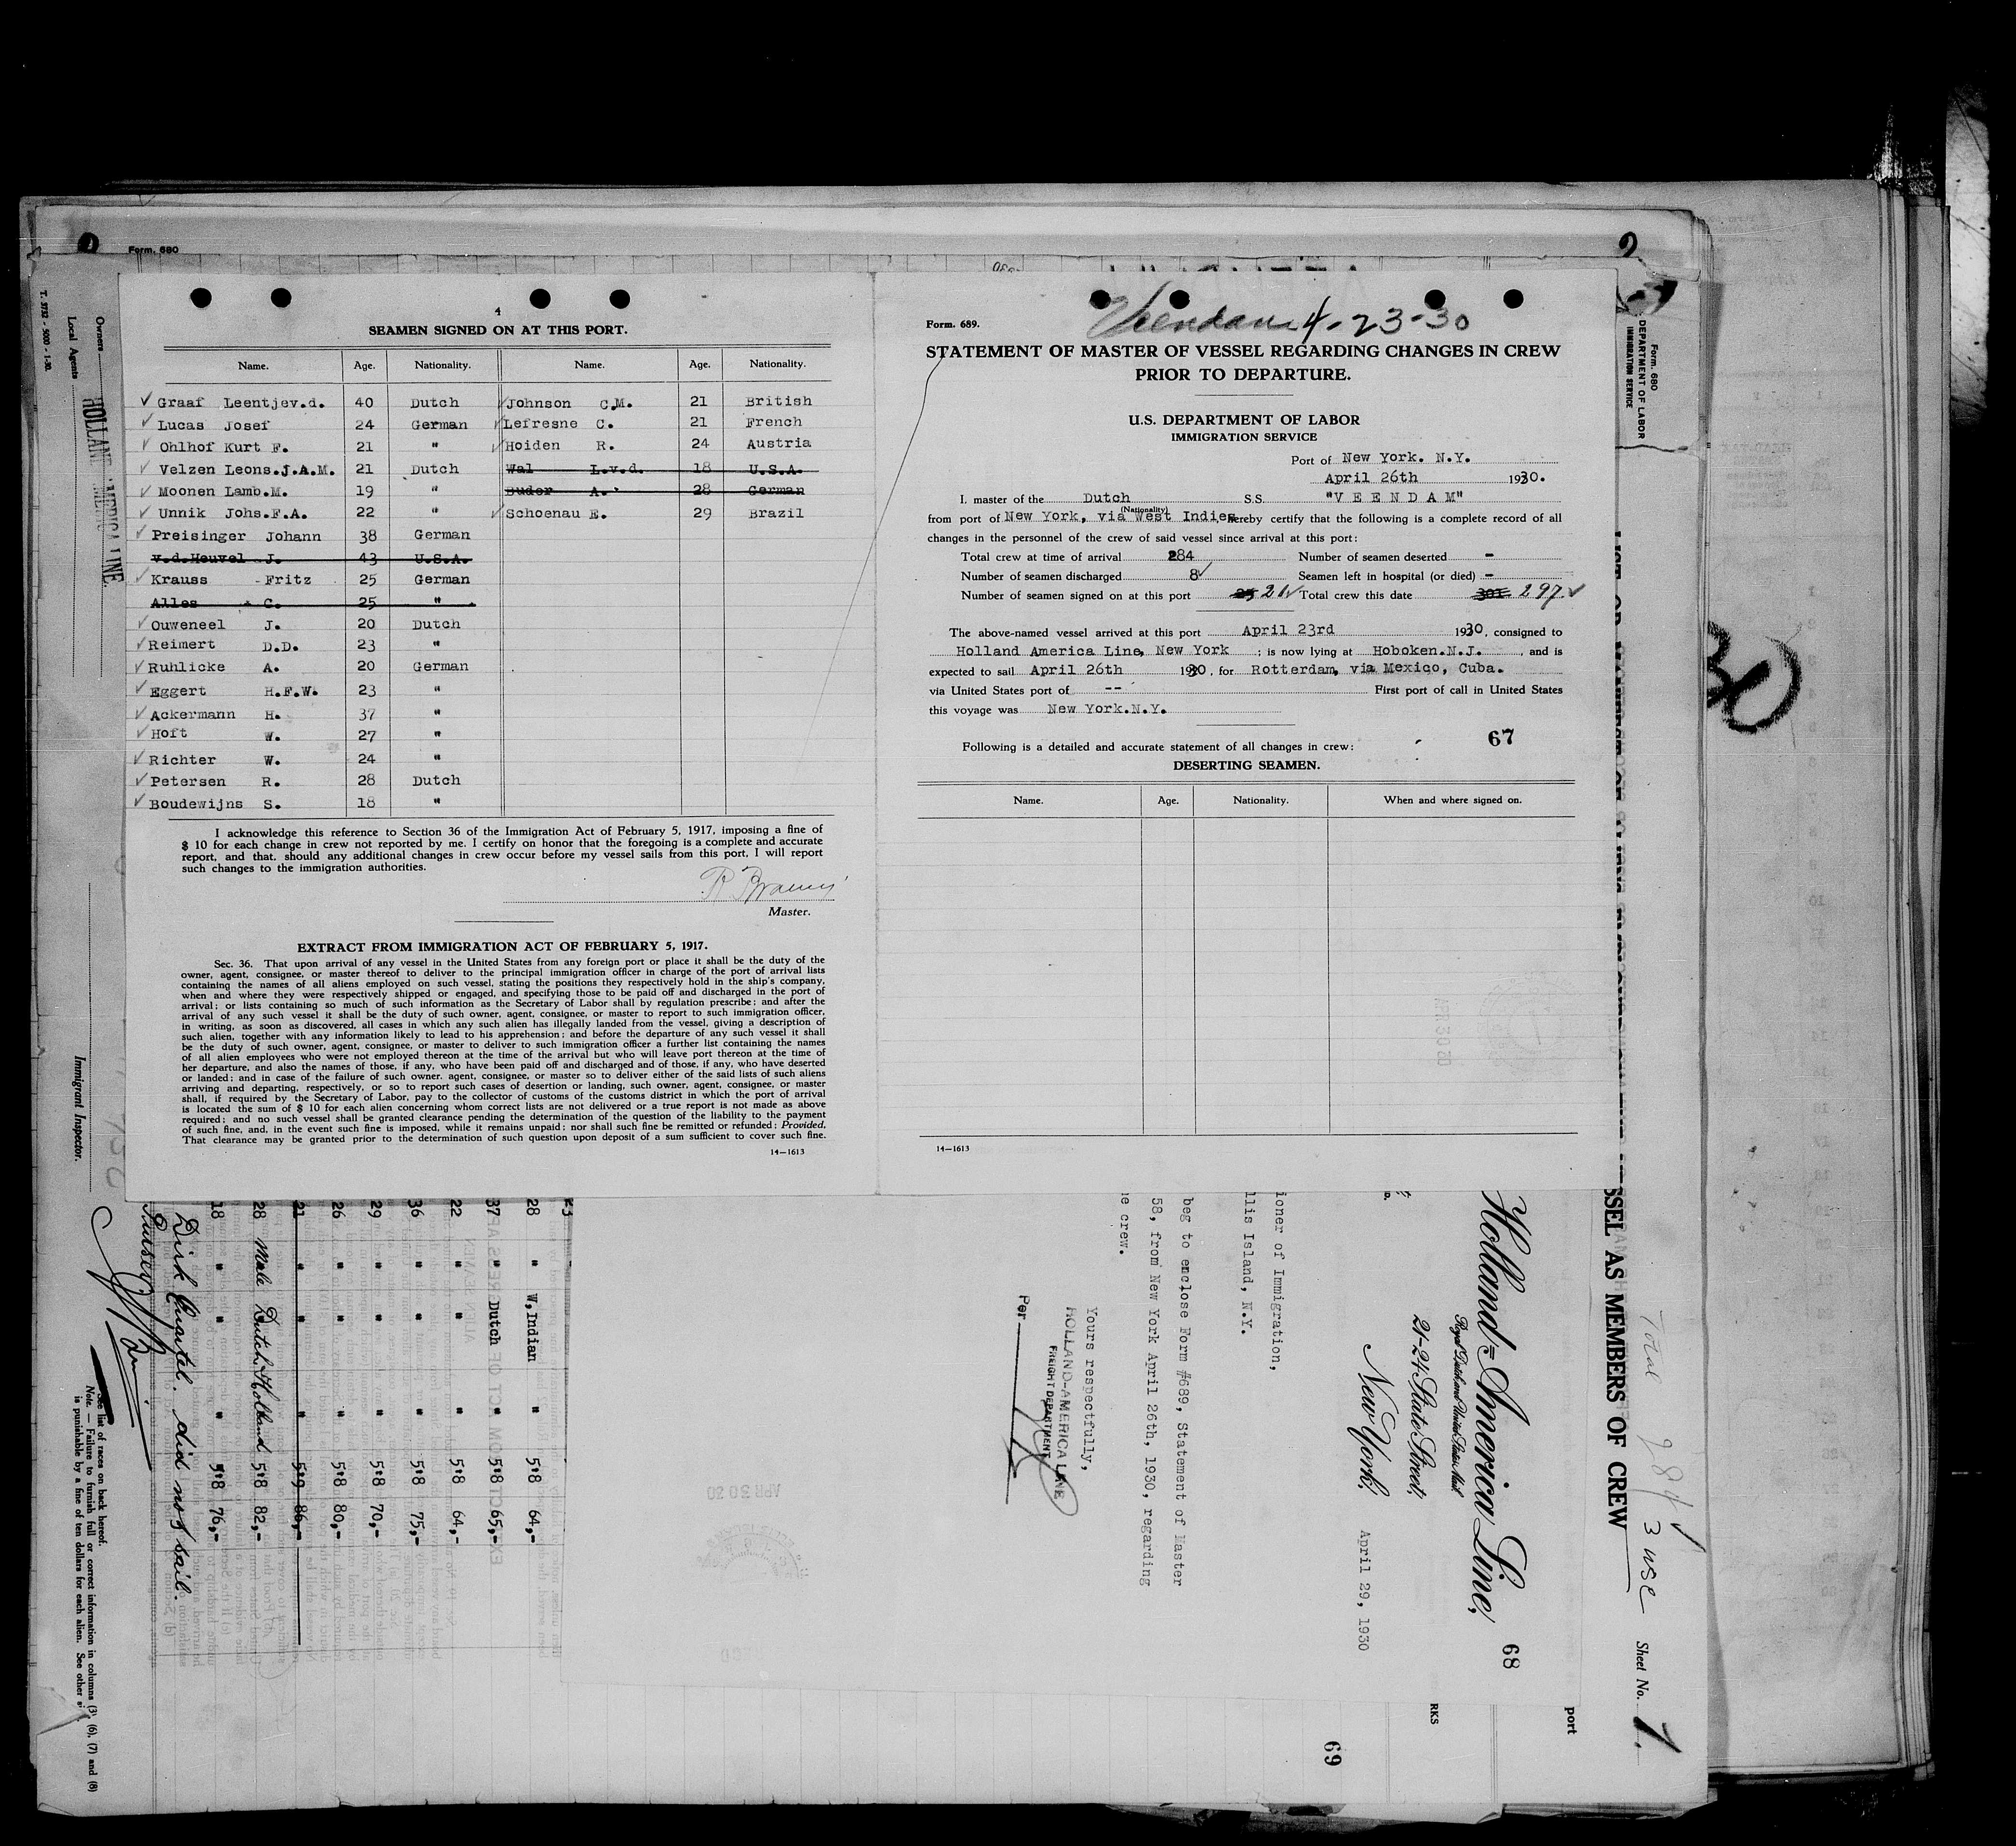 Form. 680
4
SEAMEN SIGNED ON AT THIS PORT.
Name. Age. Nationality. Name. Age. Nationality.
✓ Graaf Leentjev.d. 40 Dutch ✓ Johnson C.M. 21 British
✓ Lucas Josef 24 German ✓ Lefresne C. 21 French
✓ Ohlhof Kurt F. 21 " ✓ Hoiden R. 24 Austria
✓ Velzen Leons.J.A.M. 21 Dutch Wal L.v.d. 18 U.S.A.
✓ Moonen Lamb.M. 19 " Buder A. 28 German
✓ Unnik Johs.F.A. 22 " ✓ Schoenau E. 29 Brazil
✓ Preisinger Johann 38 German
v.d.Heuvel J. 43 U.S.A.
✓ Krauss - Fritz 25 German
Alles C. 25 "
✓ Ouweneel J. 20 Dutch
✓ Reimert D.D. 23 "
✓ Ruhlicke A. 20 German
✓ Eggert H.F.W. 23 "
✓ Ackermann H. 37 "
✓ Hoft W. 27 "
✓ Richter W. 24 "
✓ Petersen R. 28 Dutch
✓ Boudewijns S. 18 "
I acknowledge this reference to Section 36 of the Immigration Act of February 5, 1917, imposing a fine of
$ 10 for each change in crew not reported by me. I certify on honor that the foregoing is a complete and accurate
report, and that, should any additional changes in crew occur before my vessel sails from this port, I will report
such changes to the immigration authorities.
Master.
EXTRACT FROM IMMIGRATION ACT OF FEBRUARY 5, 1917.
Sec. 36. That upon arrival of any vessel in the United States from any foreign port or place it shall be the duty of the
owner, agent, consignee, or master thereof to deliver to the principal immigration officer in charge of the port of arrival lists
containing the names of all aliens employed on such vessel, stating the positions they respectively hold in the ship's company,
when and where they were respectively shipped or engaged, and specifying those to be paid off and discharged in the port of
arrival; or lists containing so much of such information as the Secretary of Labor shall by regulation prescribe; and after the
arrival of any such vessel it shall be the duty of such owner, agent, consignee, or master to report to such immigration officer,
in writing, as soon as discovered, all cases in which any such alien has illegally landed from the vessel, giving a description of
such alien, together with any information likely to lead to his apprehension; and before the departure of any such vessel it shall
be the duty of such owner, agent, consignee, or master to deliver to such immigration officer a further list containing the names
of all alien employees who were not employed thereon at the time of the arrival but who will leave port thereon at the time of
her departure, and also the names of those, if any, who have been paid off and discharged and of those, if any, who have deserted
or landed; and in case of the failure of such owner, agent, consignee, or master so to deliver either of the said lists of such aliens
arriving and departing, respectively, or so to report such cases of desertion or landing, such owner, agent, consignee, or master
shall, if required by the Secretary of Labor, pay to the collector of customs of the customs district in which the port of arrival
is located the sum of $ 10 for each alien concerning whom correct lists are not delivered or a true report is not made as above
required; and no such vessel shall be granted clearance pending the determination of the question of the liability to the payment
of such fine, and, in the event such fine is imposed, while it remains unpaid; nor shall such fine be remitted or refunded: Provided,
That clearance may be granted prior to the determination of such question upon deposit of a sum sufficient to cover such fine.
14—1613
Veendam 4-23-30
Form. 689.
STATEMENT OF MASTER OF VESSEL REGARDING CHANGES IN CREW
PRIOR TO DEPARTURE.
U.S. DEPARTMENT OF LABOR
IMMIGRATION SERVICE
Port of New York. N.Y.
April 26th 1930.
I, master of the Dutch S.S. "V E E N D A M"
(Nationality)
from port of New York, via West Indies, hereby certify that the following is a complete record of all
changes in the personnel of the crew of said vessel since arrival at this port:
Total crew at time of arrival 284 Number of seamen deserted -
Number of seamen discharged 8✓ Seamen left in hospital (or died) -
Number of seamen signed on at this port 21✓ Total crew this date 301 297.✓
The above-named vessel arrived at this port April 23rd 1930, consigned to
Holland America Line, New York ; is now lying at Hoboken.N.J. , and is
expected to sail April 26th 1930, for Rotterdam, via Mexico, Cuba.
via United States port of -- First port of call in United States
this voyage was New York.N.Y.
Following is a detailed and accurate statement of all changes in crew:
67
DESERTING SEAMEN.
Name. Age. Nationality. When and where signed on.
14—1613
T. 5732 - 5000 - 1-30.
Owners
Local Agents
HOLLAND AMERICA LINE.
Immigrant Inspector.
Form 680
DEPARTMENT OF LABOR
IMMIGRATION SERVICE
SSEL AS MEMBERS OF CREW
Total 284 ✓
3 USC
Sheet No. 1.
port
RKS
Holland=America Line,
68
21-24 State Street,
New York,
April 29, 1930
ioner of Immigration,
llis Island, N.Y.
beg to enclose Form #689, Statement of Master
58, from New York April 26th, 1930, regarding
e crew.
Yours respectfully,
HOLLAND-AMERICA LINE
FREIGHT DEPARTMENT
Per
69
28 " W,Indian " 5'8 64,-
37 " Dutch " 5'8 65,-
22 " " " 5'8 64,-
36 " " " 5'8 75,-
29 " " " 5'8 70,-
26 " " " 5'8 80,-
21 " " " 5'9 86,-
28 Male Dutch Holland 5'8 82,-
18 " " " 5'8 76,-
Dirk Quartel. did not sail.
Purser,
See list of races on back hereof.
Note. — Failure to furnish full or correct information in columns (3), (6), (7) and (8)
is punishable by a fine of ten dollars for each alien. See other si
30